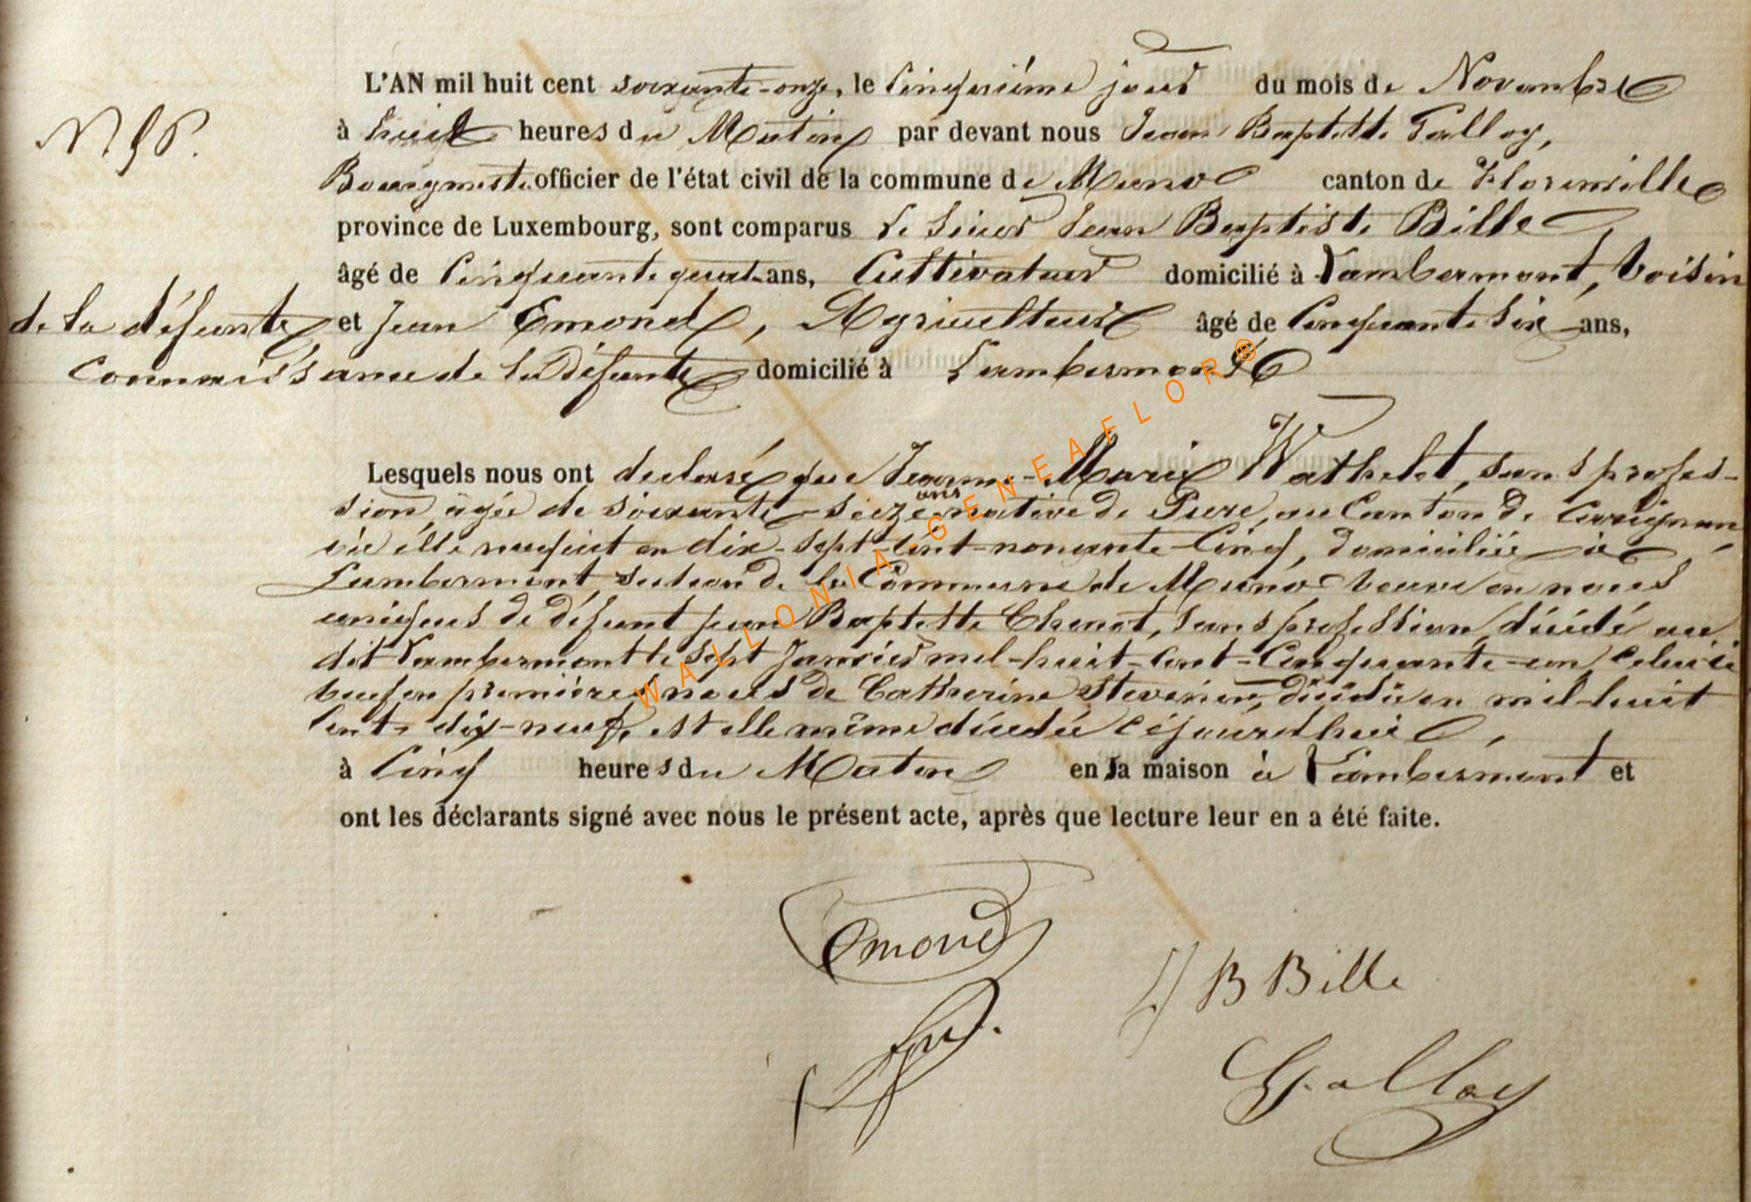 L'AN mil huit cent soixante-onze, le cinquième jour du mois de Novembre
à huit heures du Matin par devant nous Jean Baptiste Galloy,
Bourgmestre officier de l'état civil de la commune de Muno canton de Florenville
province de Luxembourg, sont comparus le Sieur Jean Baptiste Bille
âgé de cinquante quatre ans, Cultivateur domicilié à Lambermont, voisin
de la défunte, et Jean Emond, Agriculteur âgé de Cinquante six ans,
connaissance de la défunte domicilié à Lambermont
Lesquels nous ont déclaré que Jeanne-Marie Wathelet, sans profes-
sion, âgée de soixante-seize ans native de Pure, au Canton de Carignan
où elle naquit en dix-sept-cent-nonante-cinq, domiciliée à
Lambermont, section de la Commune de Muno veuve en noces
uniques de défunt Jean Baptiste Chenot, sans profession, décédé au
dit Lambermont le sept Janvier mil-huit-cent-cinquante-un, celui-ci
veuf en premières noces de Catherine Stevenin, décédée en mil-huit
cent dix-neuf, est elle même décédée cejourd'hui,
à cinq heures du Matin en sa maison à Lambermont et
ont les déclarants signé avec nous le présent acte, après que lecture leur en a été faite.
Emond
J B Bille
Galloy
WALLONIA-GENEAFLOR®